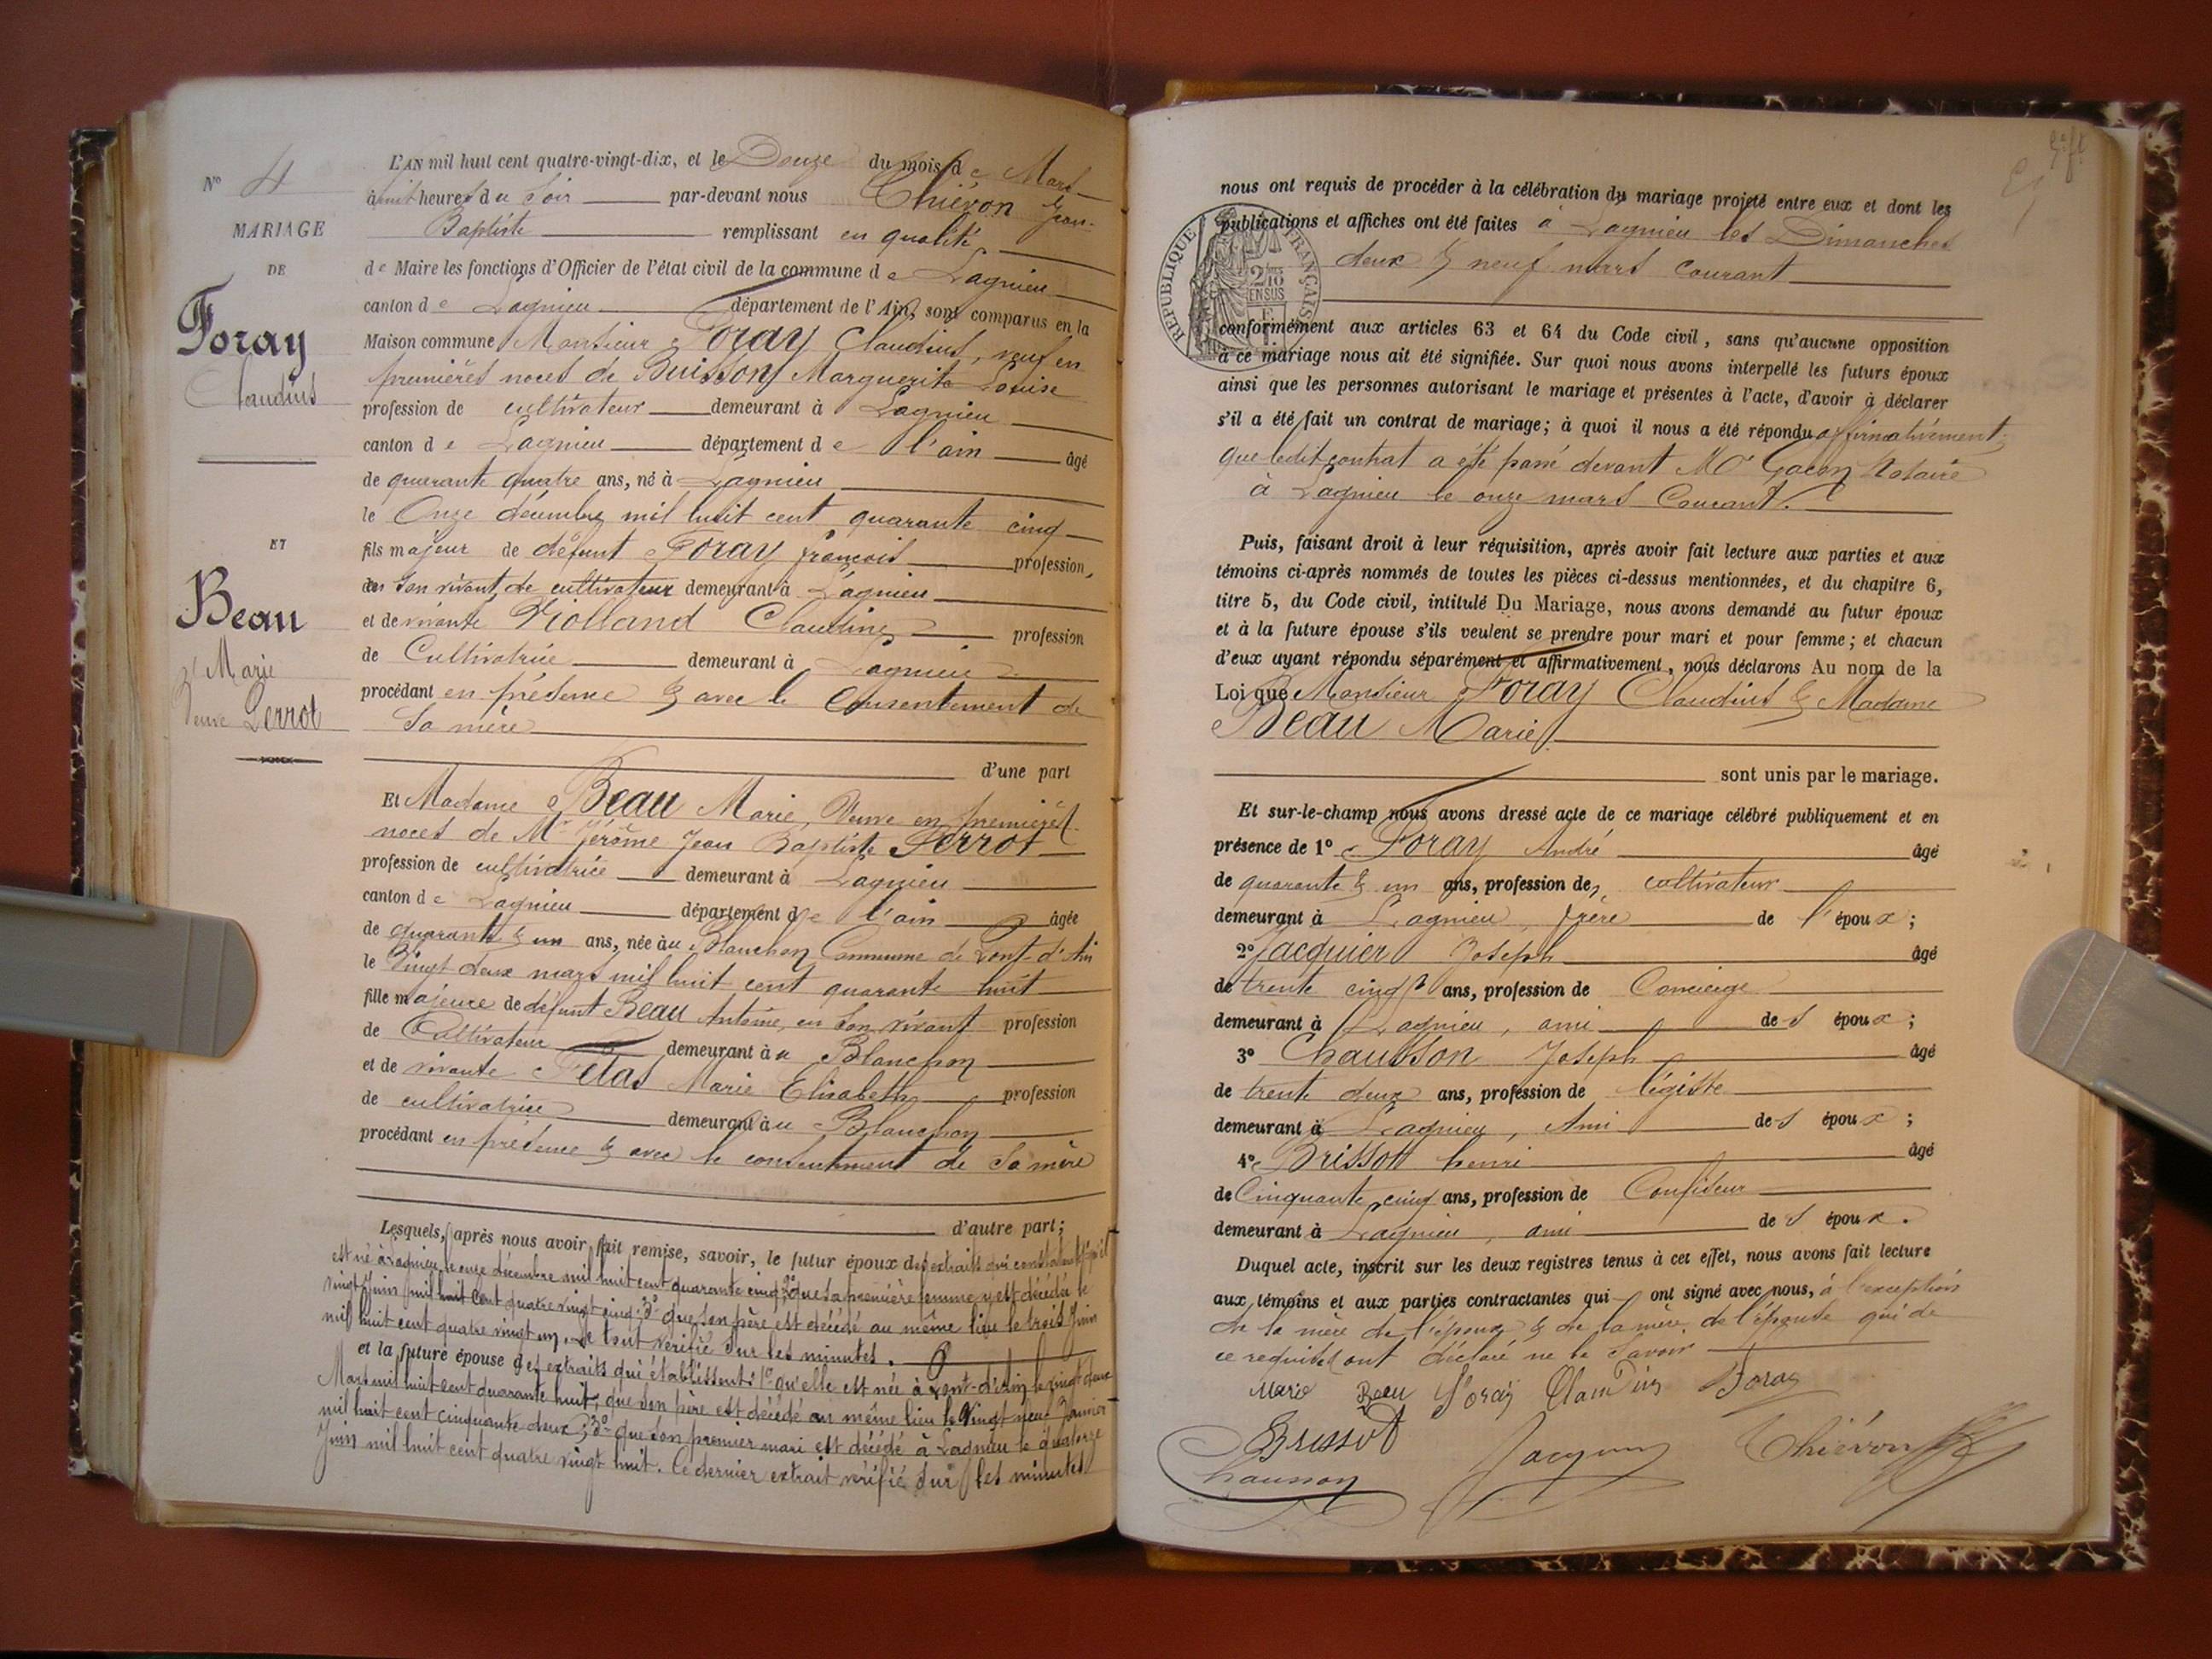 N° 4
MARIAGE
DE
Foray
Claudius
ET
Beau
Marie
Veuve Perrot
L'AN mil huit cent quatre-vingt-dix, et le Douze du mois de Mars
à huit heures du Soir par-devant nous Chiévon Jean-
Baptiste remplissant en qualité
de Maire les fonctions d'Officier de l'état civil de la commune de Lagnieu
canton de Lagnieu département de l'Ain, sont comparus en la
Maison commune Monsieur Foray Claudius, veuf en
premières noces de Buisson Marguerite Louise
profession de cultivateur demeurant à Lagnieu
canton de Lagnieu département de l'ain âgé
de quarante quatre ans, né à Lagnieu
le Onze décembre mil huit cent quarante cinq
fils majeur de défunt Foray françois profession,
en son vivant, de cultivateur demeurant à Lagnieu
et de vivante Violland Claudine profession
de Cultivatrice demeurant à Lagnieu
procédant en présence & avec le Consentement de
Sa mère
d'une part
Et Madame Beau Marie, Veuve en premières
noces de Mr Jérôme Jean Baptiste Perrot
profession de cultivatrice demeurant à Lagnieu
canton de Lagnieu département de l'ain âgée
de quarante & un ans, née au Blanchon Commune de Pont-d'Ain
le Vingt deux mars mil huit cent quarante huit
fille majeure de défunt Beau Antoine, en son vivant profession
de Cultivateur demeurant au Blanchon
et de vivante Fétas Marie Elisabeth profession
de cultivatrice demeurant au Blanchon
procédant en présence & avec le consentement de Sa mère
d'autre part;
Lesquels, après nous avoir fait remise, savoir, le futur époux des extraits qui constatent: 1° qu'il
est né à Lagnieu, le onze décembre mil huit cent quarante cinq; 2° que sa première femme y est décédée le
vingt Juin mil huit cent quatre vingt cinq; 3° que son père est décédé au même lieu le trois Juin
mil huit cent quatre vingt un. Le tout vérifié sur les minutes.
et la future épouse des extraits qui établissent: 1° qu'elle est née à Pont-d'Ain le vingt deux
Mars mil huit cent quarante huit; que son père est décédé au même lieu le Vingt neuf Janvier
mil huit cent cinquante deux; 3° que son premier mari est décédé à Lagnieu le quatorze
Juin mil huit cent quatre vingt huit. Ce dernier extrait vérifié sur les minutes
nous ont requis de procéder à la célébration du mariage projeté entre eux et dont les
publications et affiches ont été faites à Lagnieu les Dimanches
deux & neuf mars courant
REPUBLIQUE FRANÇAISE
2/10 EN SUS
conformément aux articles 63 et 64 du Code civil, sans qu'aucune opposition
à ce mariage nous ait été signifiée. Sur quoi nous avons interpellé les futurs époux
ainsi que les personnes autorisant le mariage et présentes à l'acte, d'avoir à déclarer
s'il a été fait un contrat de mariage; à quoi il nous a été répondu affirmativement;
que ledit contrat a été passé devant Me Gacon Notaire
à Lagnieu le onze mars Courant.
Puis, faisant droit à leur réquisition, après avoir fait lecture aux parties et aux
témoins ci-après nommés de toutes les pièces ci-dessus mentionnées, et du chapitre 6,
titre 5, du Code civil, intitulé Du Mariage, nous avons demandé au futur époux
et à la future épouse s'ils veulent se prendre pour mari et pour femme; et chacun
d'eux ayant répondu séparément et affirmativement, nous déclarons Au nom de la
Loi que Monsieur Foray Claudius & Madame
Beau Marie
sont unis par le mariage.
Et sur-le-champ nous avons dressé acte de ce mariage célébré publiquement et en
présence de 1° Foray André âgé
de quarante & un ans, profession de cultivateur
demeurant à Lagnieu, frère de l'époux;
2° Jacquier Joseph âgé
de trente cinq ans, profession de Concierge
demeurant à Lagnieu, ami des époux;
3° Chausson Joseph âgé
de trente deux ans, profession de légiste
demeurant à Lagnieu, Ami des époux;
4° Brissot henri âgé
de Cinquante cinq ans, profession de Confiseur
demeurant à Lagnieu, ami des époux.
Duquel acte, inscrit sur les deux registres tenus à cet effet, nous avons fait lecture
aux témoins et aux parties contractantes qui ont signé avec nous, à l'exception
de la mère de l'époux & de la mère de l'épouse qui de
ce requises ont déclaré ne le Savoir
Marie Beau Foray Claudius Foray
Brissot Jacquier Chiévon
Chausson